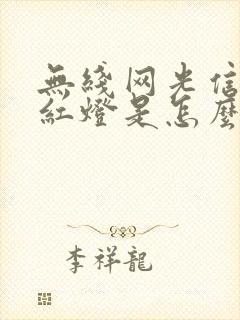 無綫网光信
紅燈是怎麼
李祥龍